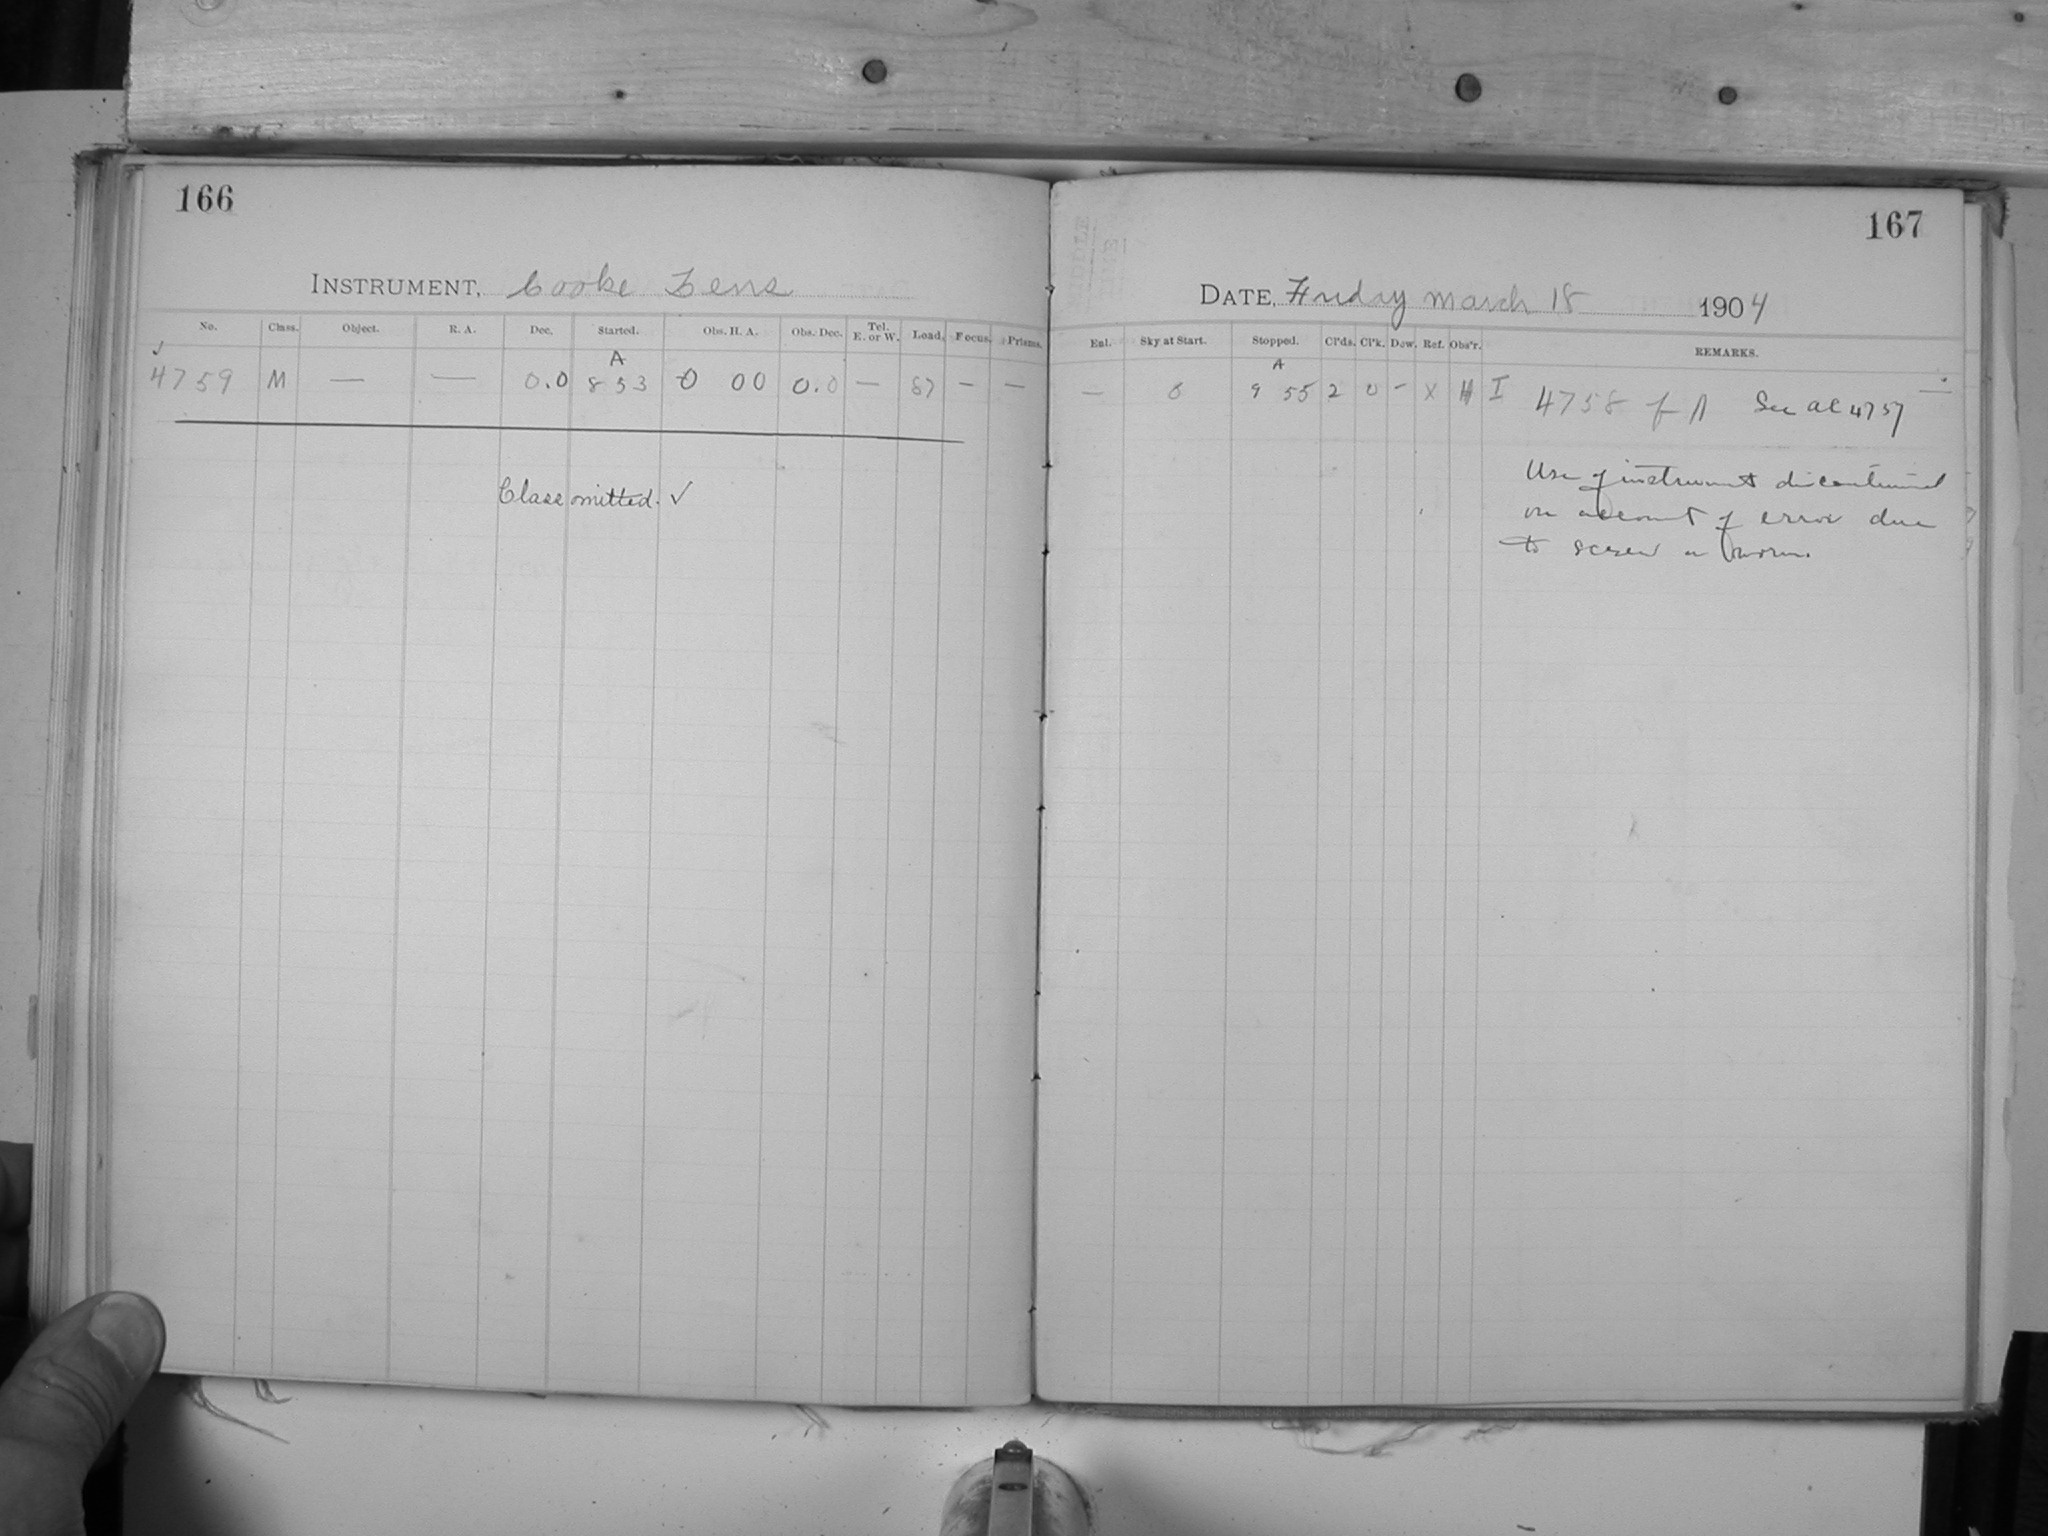 166
INSTRUMENT, Cooke Lens
No. Class. Object. R. A. Dec. Started. Obs. H. A. Obs. Dec. Tel. E. or W. Load. Focus. Prisms.
A
4759 M — — 0.0 8 53 0 00 0.0 — 87 — —
Class omitted. ✓
167
DATE, Friday March 18 1904
Enl. Sky at Start. Stopped. Cl'ds. Cl'k. Dew. Ref. Obs'r. REMARKS.
A
— 9 55 2 0 – X I 4758 f A See AC 4757
Use of instrument discontinued
on account of error due
to screw or worm.